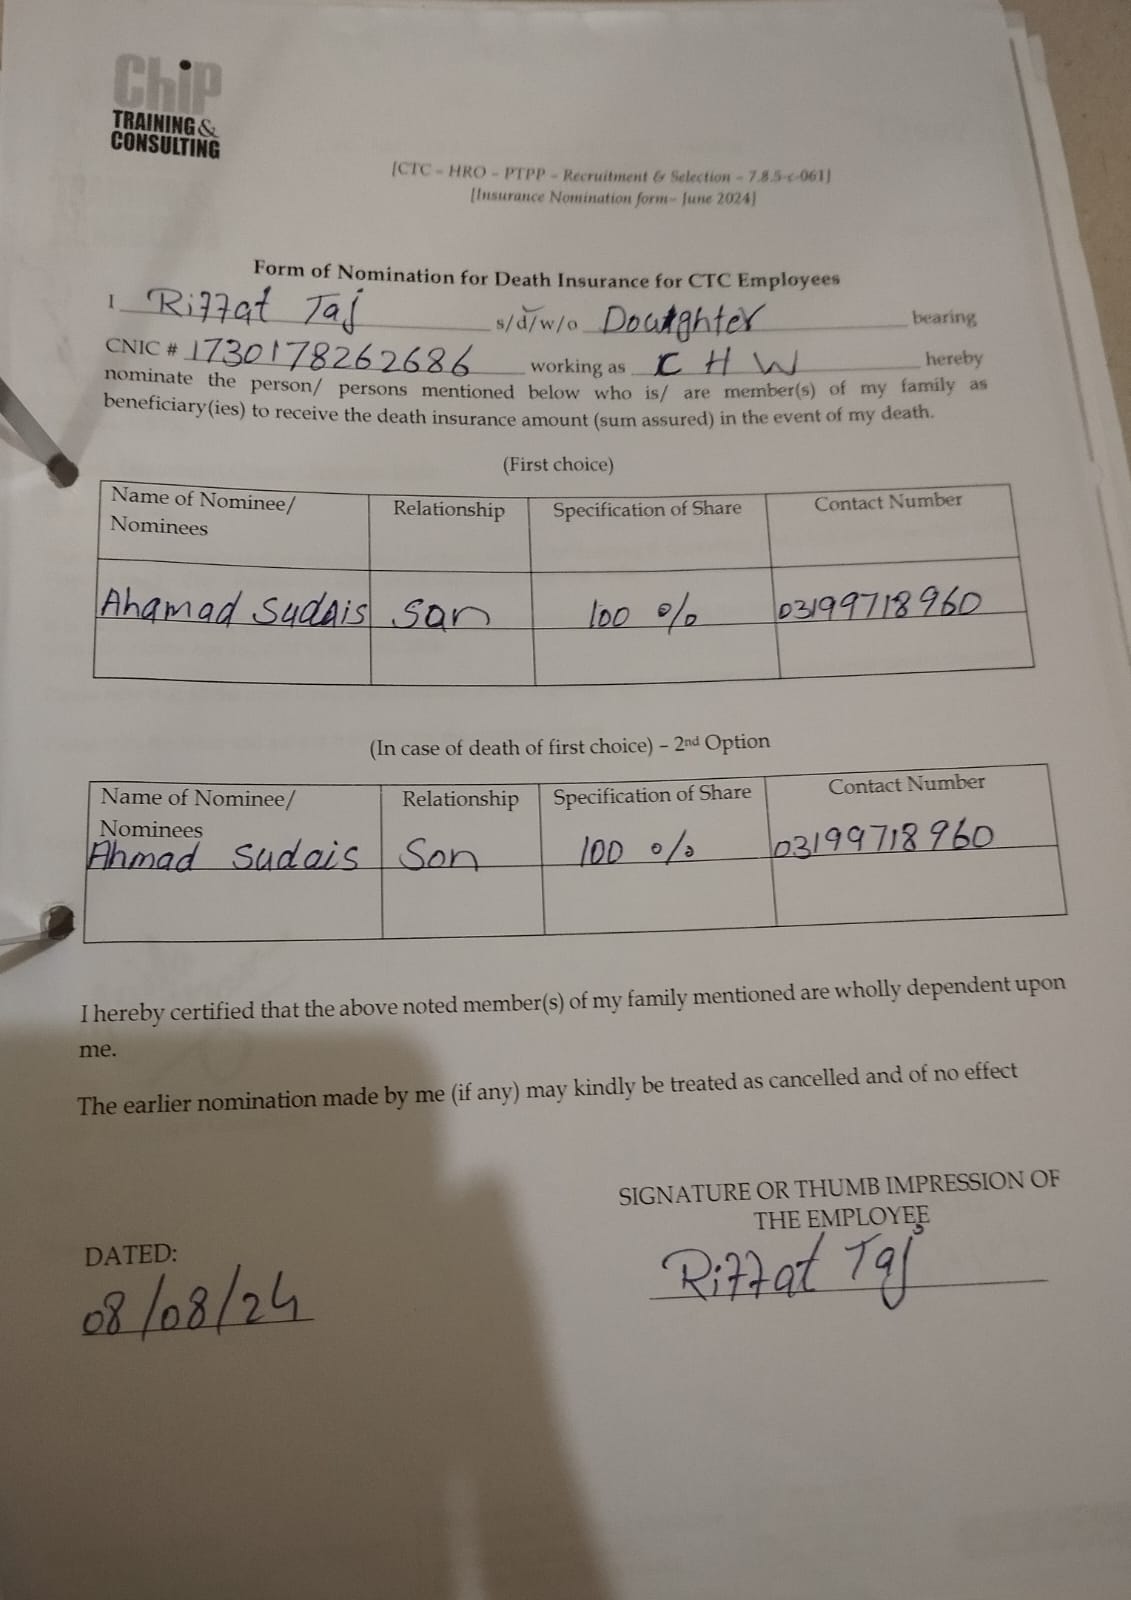 ChiP
TRAINING &
CONSULTING
[CTC – HRO – PTPP – Recruitment & Selection – 7.8.5-c-061]
[Insurance Nomination form– June 2024]
Form of Nomination for Death Insurance for CTC Employees
I Riffat Taj s/d/w/o Doughter bearing
CNIC # 1730178262686 working as C H W hereby
nominate the person/ persons mentioned below who is/ are member(s) of my family as
beneficiary(ies) to receive the death insurance amount (sum assured) in the event of my death.
(First choice)
Name of Nominee/ Relationship Specification of Share Contact Number
Nominees
Ahamad Sudais San 100 % 03199718960
(In case of death of first choice) – 2nd Option
Name of Nominee/ Relationship Specification of Share Contact Number
Nominees
Ahmad Sudais Son 100 % 03199718960
I hereby certified that the above noted member(s) of my family mentioned are wholly dependent upon
me.
The earlier nomination made by me (if any) may kindly be treated as cancelled and of no effect
SIGNATURE OR THUMB IMPRESSION OF
THE EMPLOYEE
DATED:
Riffat Taj
08/08/24